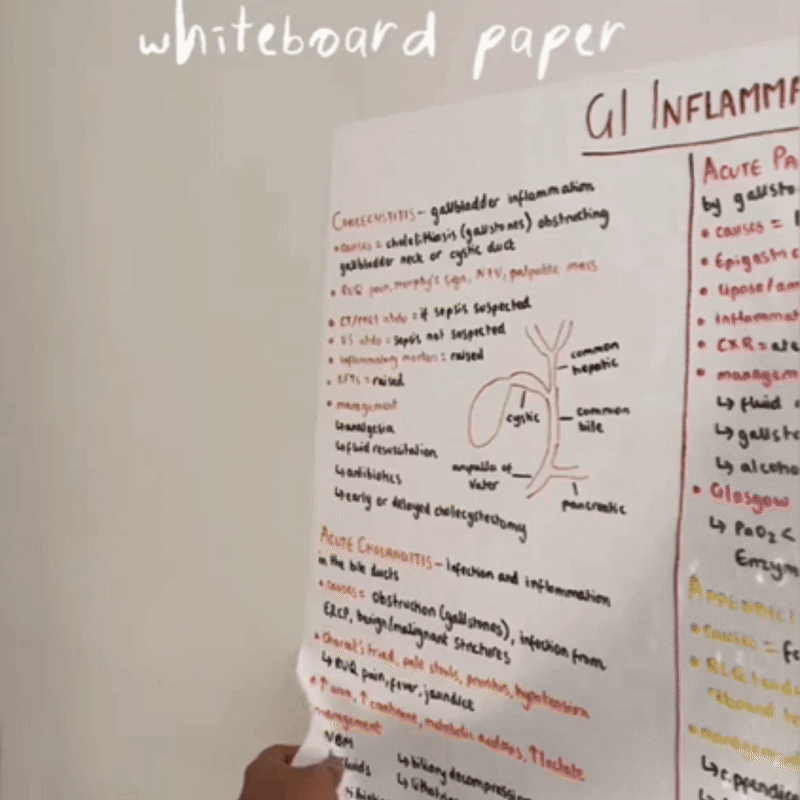 whiteboard paper
GI INFLAMMA
CHOLECYSTITIS - gallbladder inflammation
• causes = cholelithiasis (gallstones) obstructing
gallbladder neck or cystic duct
• RUQ pain, murphy's sign, N+V, palpable mass
• CT/MRI abdo = if sepsis suspected
• US abdo = sepsis not suspected
• inflammatory markers = raised
• LFTs = raised
• management
↳ analgesia
↳ fluid resuscitation
↳ antibiotics
↳ early or delayed cholecystectomy
common
hepatic
cystic
common
bile
ampulla of
Vater
pancreatic
ACUTE CHOLANGITIS - infection and inflammation
in the bile ducts
• causes = obstruction (gallstones), infection from
ERCP, benign/malignant strictures
• Charcot's triad, pale stools, pruritus, hypotension
↳ RUQ pain, fever, jaundice
• ↑ urea, ↑ creatinine, metabolic acidosis, ↑ lactate
management
NBM
↳ biliary decompression
ACUTE PA
by gallsto
• causes =
• Epigastric
• lipase/am
• inflammat
• CXR = ate
• managem
↳ fluid
↳ gallsto
↳ alcoho
• Glasgow
↳ PaO₂ <
Enzym
APPENDICI
• causes = fe
• RLQ tend
rebound te
• managem
↳ appendice